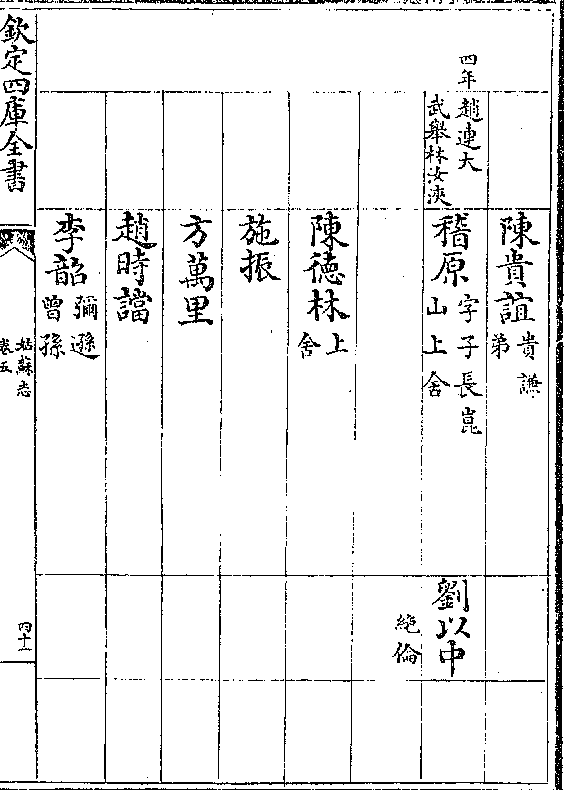 陳貴誼 貴謙弟
四年 趙逵大
武舉林汝浹
稽原 字子長崑山上舍
劉以中
絶倫
陳徳林 上舍
施振
方萬里
趙時譡
李韶 彌遜曾孫
欽定四庫全書
姑蘇志
卷五
四十一